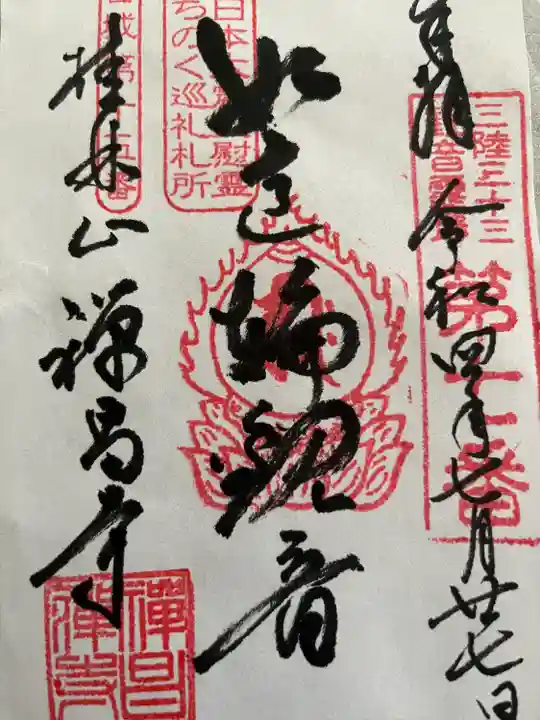 奉拝 令和四年七月廿七日
三陸三十三
観音霊場
第十二番
如意輪観音
日本大震災慰霊
みちのく巡礼札所
宮城第十五番
桂林山 禅昌寺
禅昌
禅寺